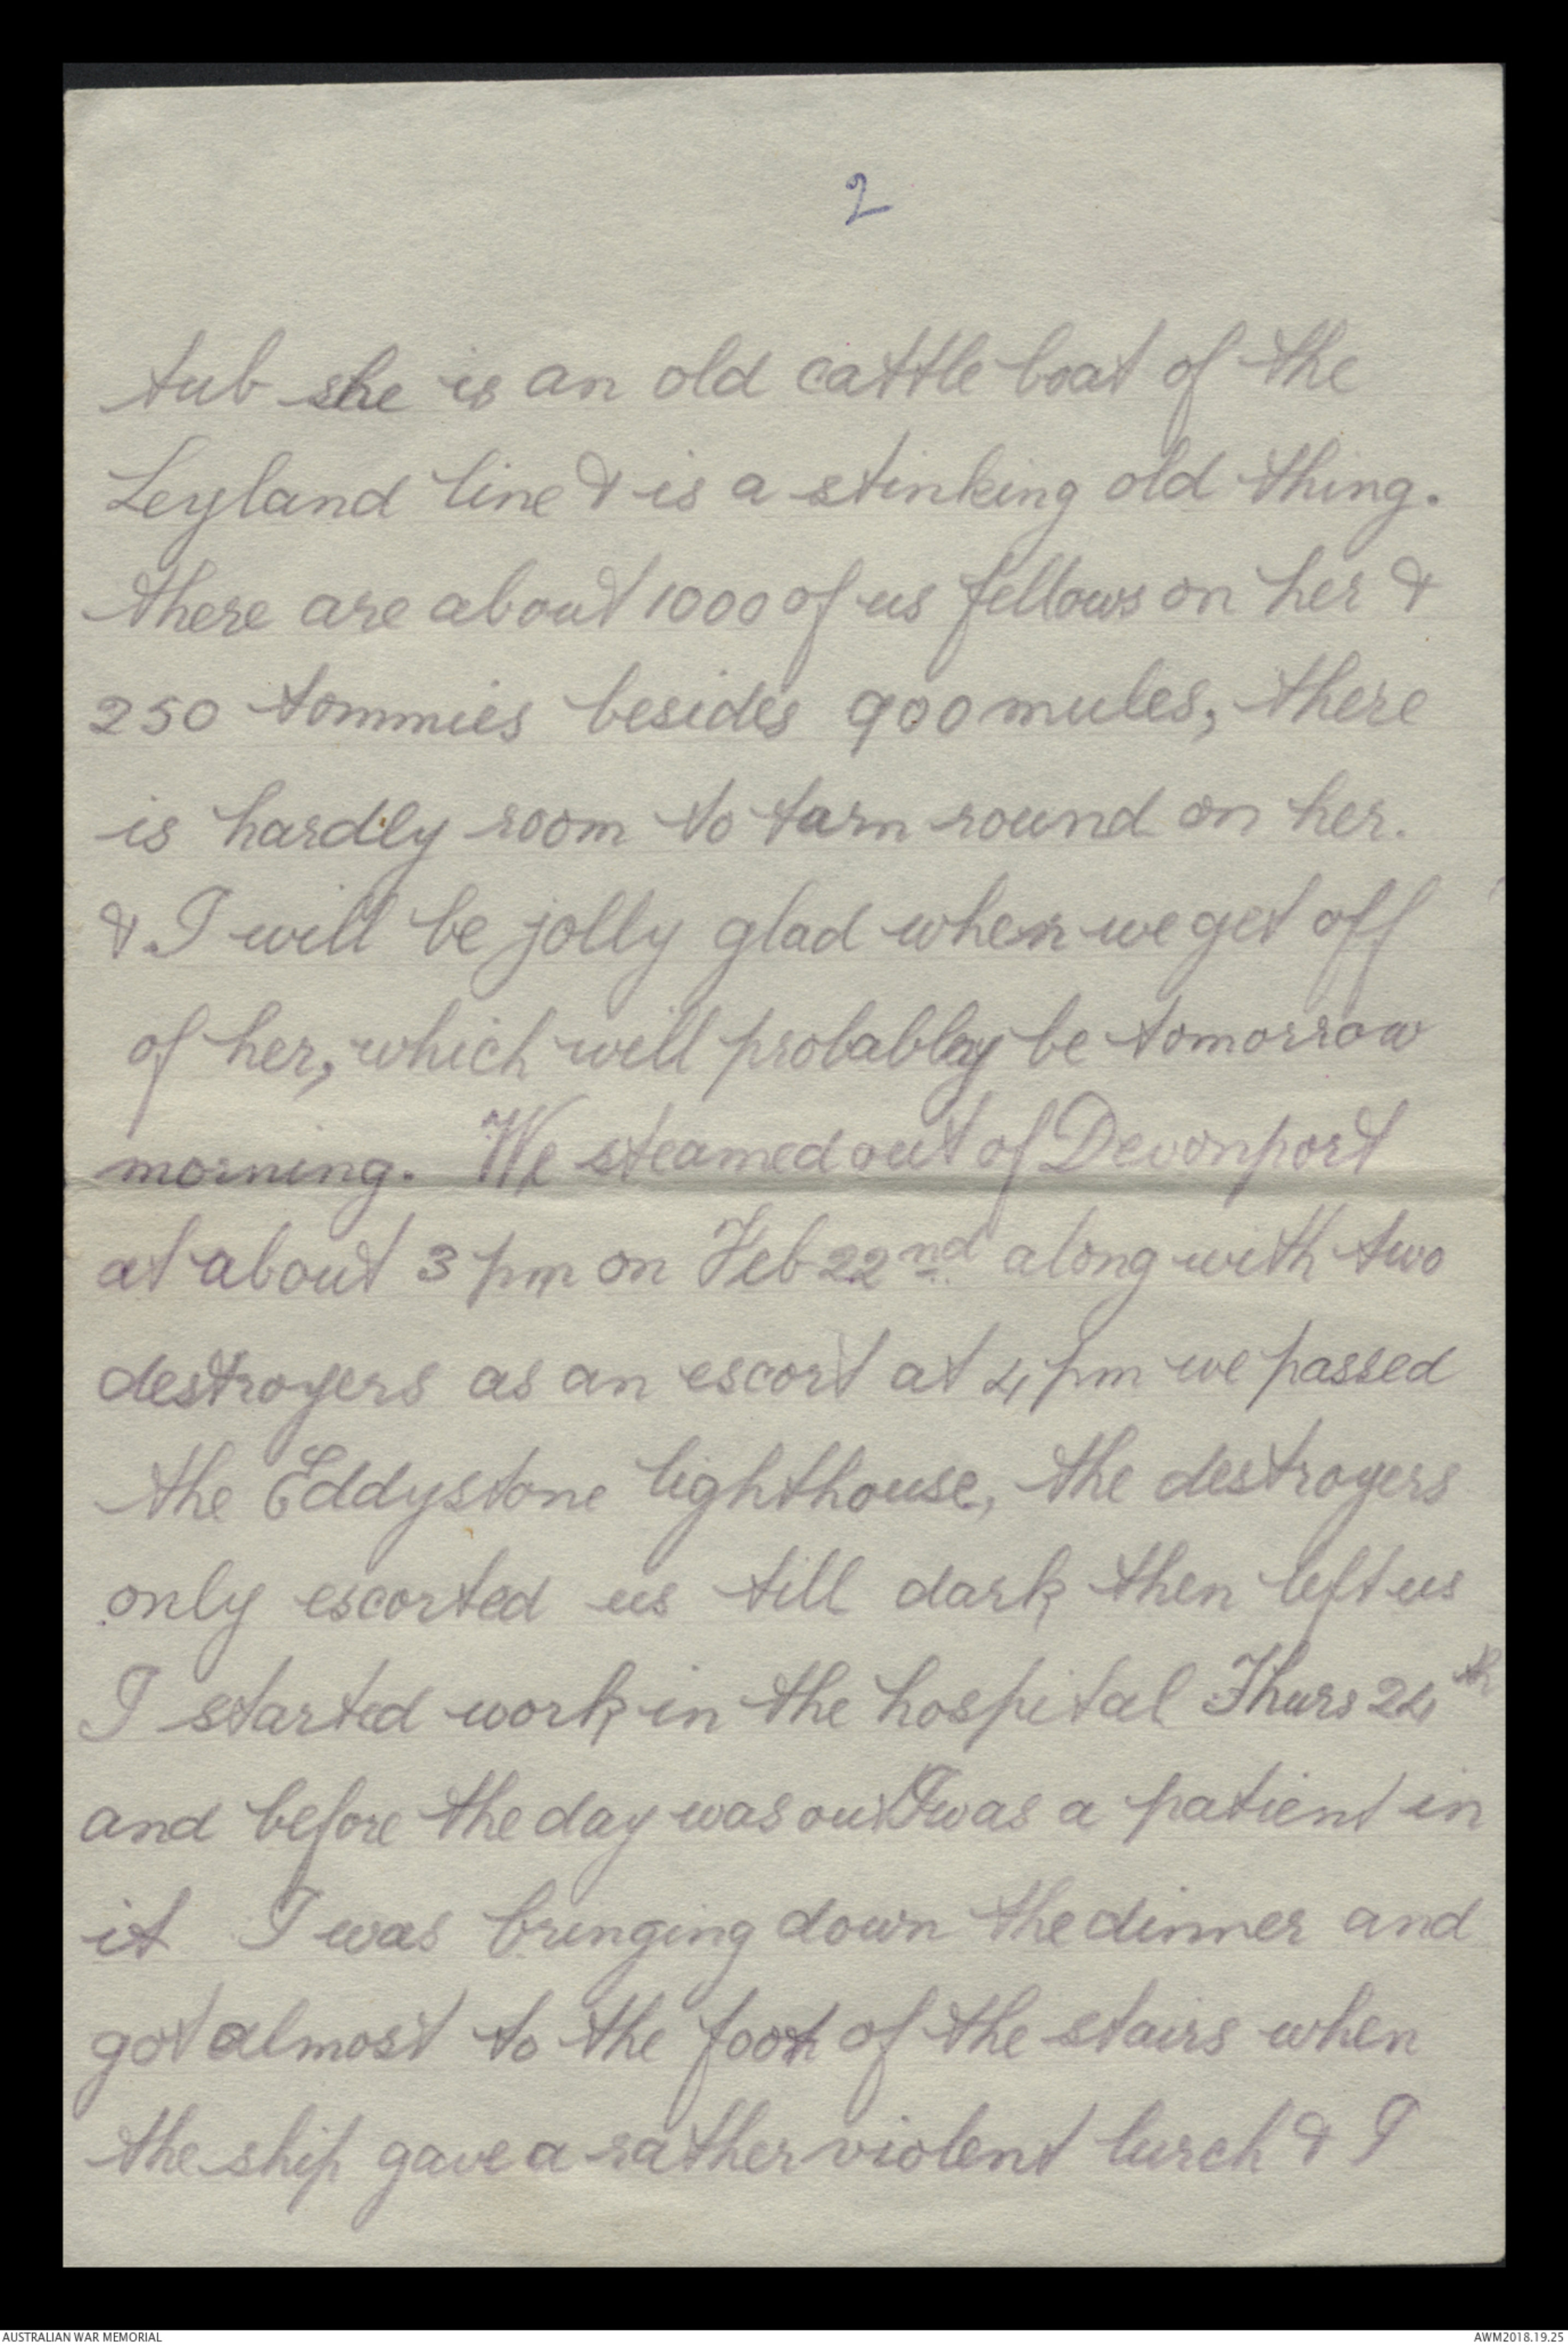 2
tub she is an old cattle boat of the
Leyland line & is a stinking old thing.
there are about 1000 of us fellows on her &
250 tommies besides 900 mules, there
is hardly room to turn round on her.
& I will be jolly glad when we get off
of her, which will probablay be tomorrow
morning. We steamed out of Devonport
at about 3 pm on Feb 22nd along with two
destroyers as an escort at 4 pm we passed
the Eddystone lighthouse, the destroyers
only escorted us till dark then left us
I started work in the hospital Thurs 24th
and before the day was out I was a patient in
it I was bringing down the dinner and
got almost to the foot of the stairs when
the ship gave a rather violent lurch & I
AUSTRALIAN WAR MEMORIAL
AWM2018.19.25